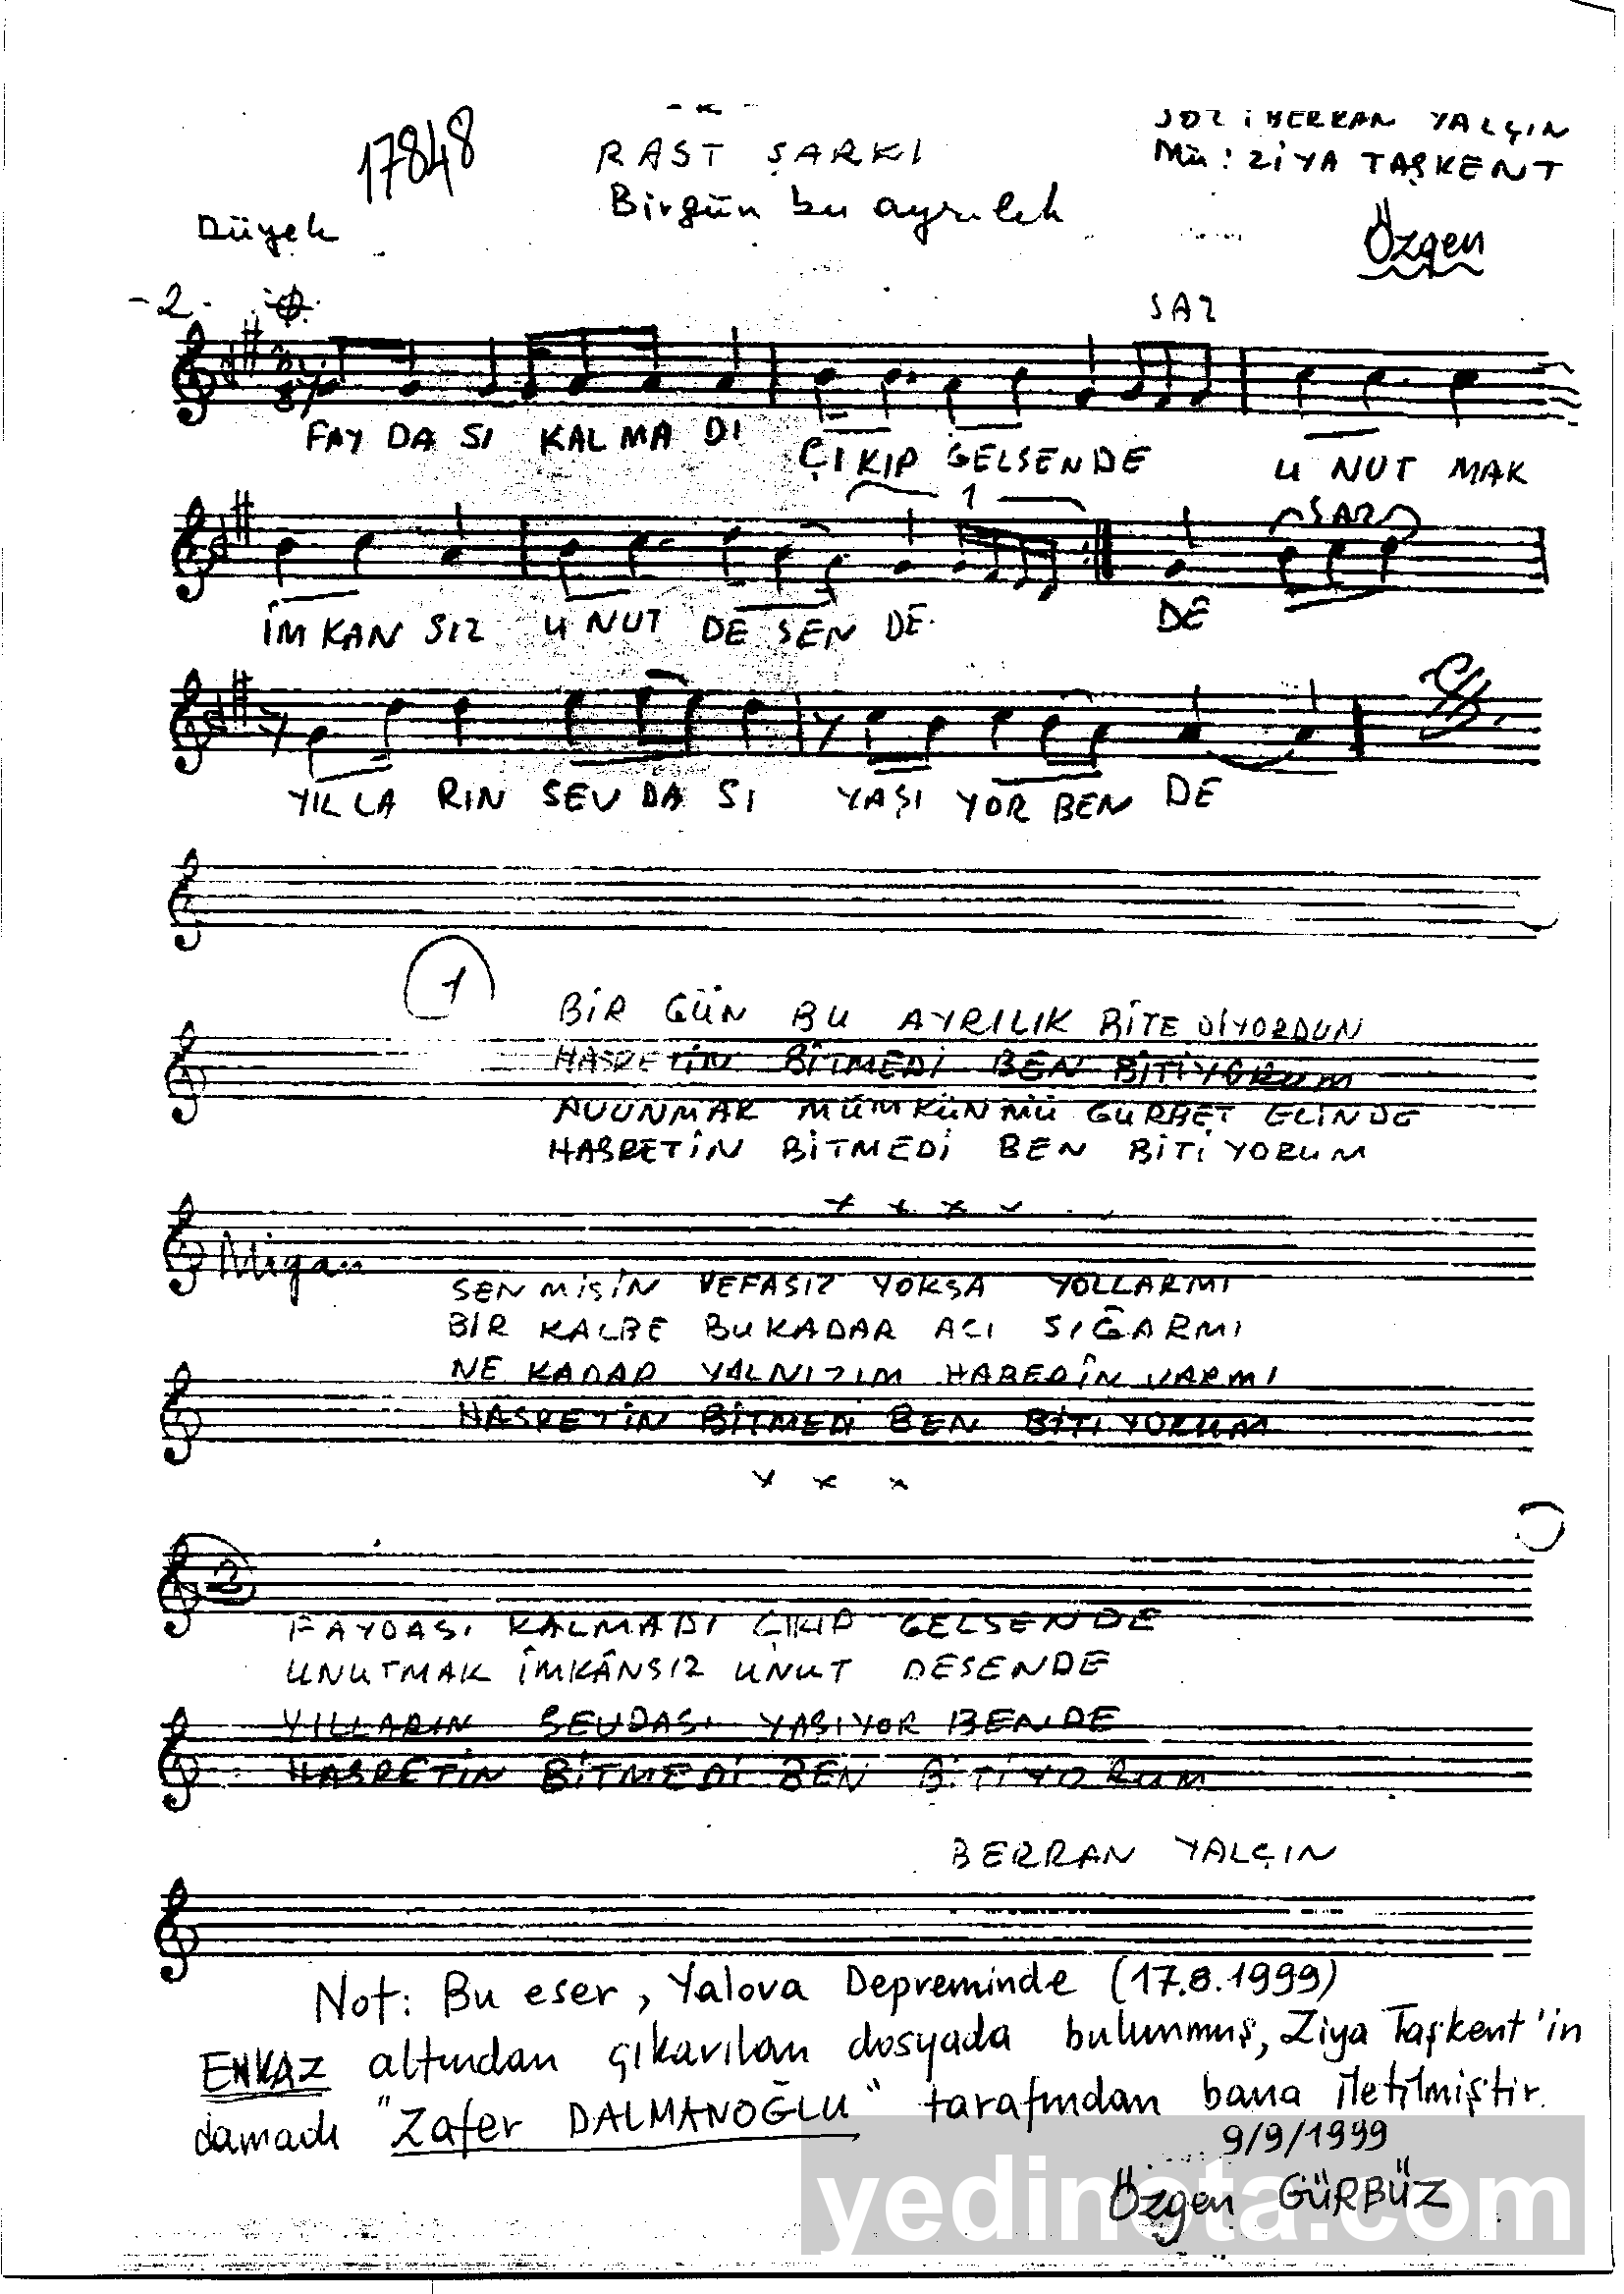 SÖZ : BERRAN YALÇIN
17848
RAST ŞARKI
Mü : ZİYA TAŞKENT
Birgün bu ayrılık
Düyek
Özgen
-2-
SAZ
FAY DA SI KAL MA DI ÇI KIP GELSENDE U NUT MAK
1
SAZ
İM KAN SIZ U NUT DE SEN DE DE
YIL LA RIN SEV DA SI YAŞI YOR BEN DE
1
BİR GÜN BU AYRILIK BİTE DİYORDUN
HASRETİN BİTMEDİ BEN BİTİYORUM
AVUNMAK MÜMKÜNMÜ GURBET ELİNDE
HASRETİN BİTMEDİ BEN BİTİYORUM
x x x
Miyan
SENMİSİN VEFASIZ YOKSA YOLLARMI
BİR KALBE BUKADAR ACI SIĞARMI
NE KADAR YALNIZIM HABERİN VARMI
HASRETİN BİTMEDİ BEN BİTİYORUM
x x x
2
FAYDASI KALMADI ÇIKIP GELSENDE
UNUTMAK İMKÂNSIZ UNUT DESENDE
YILLARIN SEVDASI YAŞIYOR BENDE
HASRETİN BİTMEDİ BEN BİTİYORUM
BERRAN YALÇIN
Not: Bu eser, Yalova Depreminde (17.8.1999)
ENKAZ altından çıkarılan dosyada bulunmuş, Ziya Taşkent'in
damadı "Zafer DALMANOĞLU" tarafından bana iletilmiştir.
9/9/1999
Özgen GÜRBÜZ
yedinota.com